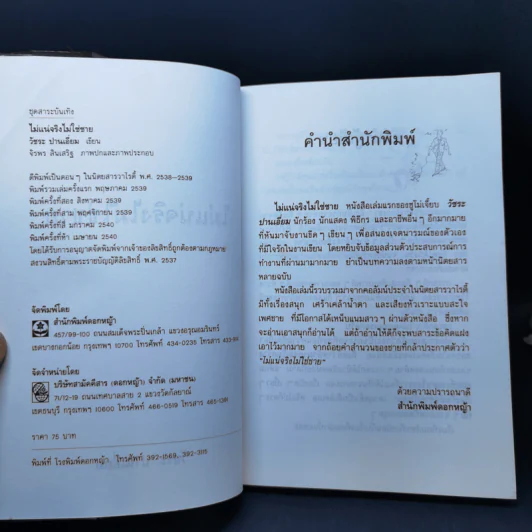 ชุดสาระบันเทิง
ไม่แน่จริงไม่ใช่ชาย
วัชระ ปานเอี่ยม เขียน
จิรพร สินเสริฐ ภาพปกและภาพประกอบ
ตีพิมพ์เป็นตอนๆ ในนิตยสารวาไรตี้ พ.ศ. 2538-2539
พิมพ์รวมเล่มครั้งแรก พฤษภาคม 2539
พิมพ์ครั้งที่สอง สิงหาคม 2539
พิมพ์ครั้งที่สาม พฤศจิกายน 2539
พิมพ์ครั้งที่สี่ มกราคม 2540
พิมพ์ครั้งที่ห้า เมษายน 2540
โดยได้รับการอนุญาตจัดพิมพ์จากเจ้าของลิขสิทธิ์ถูกต้องตามกฎหมาย
สงวนสิทธิ์ตามพระราชบัญญัติลิขสิทธิ์ พ.ศ. 2537
จัดพิมพ์โดย
สำนักพิมพ์ดอกหญ้า
457/99-100 ถนนสมเด็จพระปิ่นเกล้า แขวงอรุณอมรินทร์
เขตบางกอกน้อย กรุงเทพฯ 10700 โทรศัพท์ 434-0235 โทรสาร
จัดจำหน่ายโดย
บริษัทสามัคคีสาร (ดอกหญ้า) จำกัด (มหาชน)
71/12-19 ถนนเทศบาลสาย 2 แขวงวัดกัลยาณ์
เขตธนบุรี กรุงเทพฯ 10600 โทรศัพท์ 466-0519 โทรสาร
ราคา 75 บาท
พิมพ์ที่ โรงพิมพ์ดอกหญ้า โทรศัพท์ 392-1569,
คำนำสำนักพิมพ์
ไม่แน่จริงไม่ใช่ชาย หนังสือเล่มแรกของซูโม่เจี๊ยบ วัชระ
ปานเอี่ยม นักร้อง นักแสดง พิธีกร และอาชีพอื่นๆ อีกมากมาย
ที่หันมาจับงานขีดๆ เขียนๆ เพื่อสนองเจตนารมณ์ของตัวเอง
ที่มีใจรักในงานเขียน โดยหยิบจับข้อมูลส่วนตัวประสบการณ์การ
ทำงานที่ผ่านมามากมาย ยำเป็นบทความลงตามหน้านิตยสาร
หลายฉบับ
หนังสือเล่มนี้รวบรวมมาจากคอลัมน์ประจำในนิตยสารวาไรตี้
มีทั้งเรื่องสนุก เศร้าเคล้าน้ำตา และเสียงหัวเราะแบบสะใจ
เพศชาย ที่มีโอกาสได้เหน็บแนมสาวๆ ผ่านตัวหนังสือ ซึ่งหาก
จะอ่านเอาสนุกก็อ่านได้ แต่ถ้าอ่านให้ดีก็จะพบสาระข้อคิดแฝง
เอาไว้มากมาย จากถ้อยคำสำนวนของชายที่กล้าประกาศตัวว่า
"ไม่แน่จริงไม่ใช่ชาย"
ด้วยความปรารถนาดี
สำนักพิมพ์ดอกหญ้า